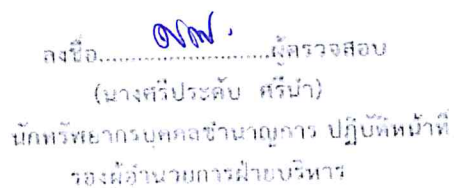 ลงชื่อ..............................ผู้ตรวจสอบ
(นางศรีประดับ ศรีนำ)
นักทรัพยากรบุคคลชำนาญการ ปฏิบัติหน้าที่
รองผู้อำนวยการฝ่ายบริหาร